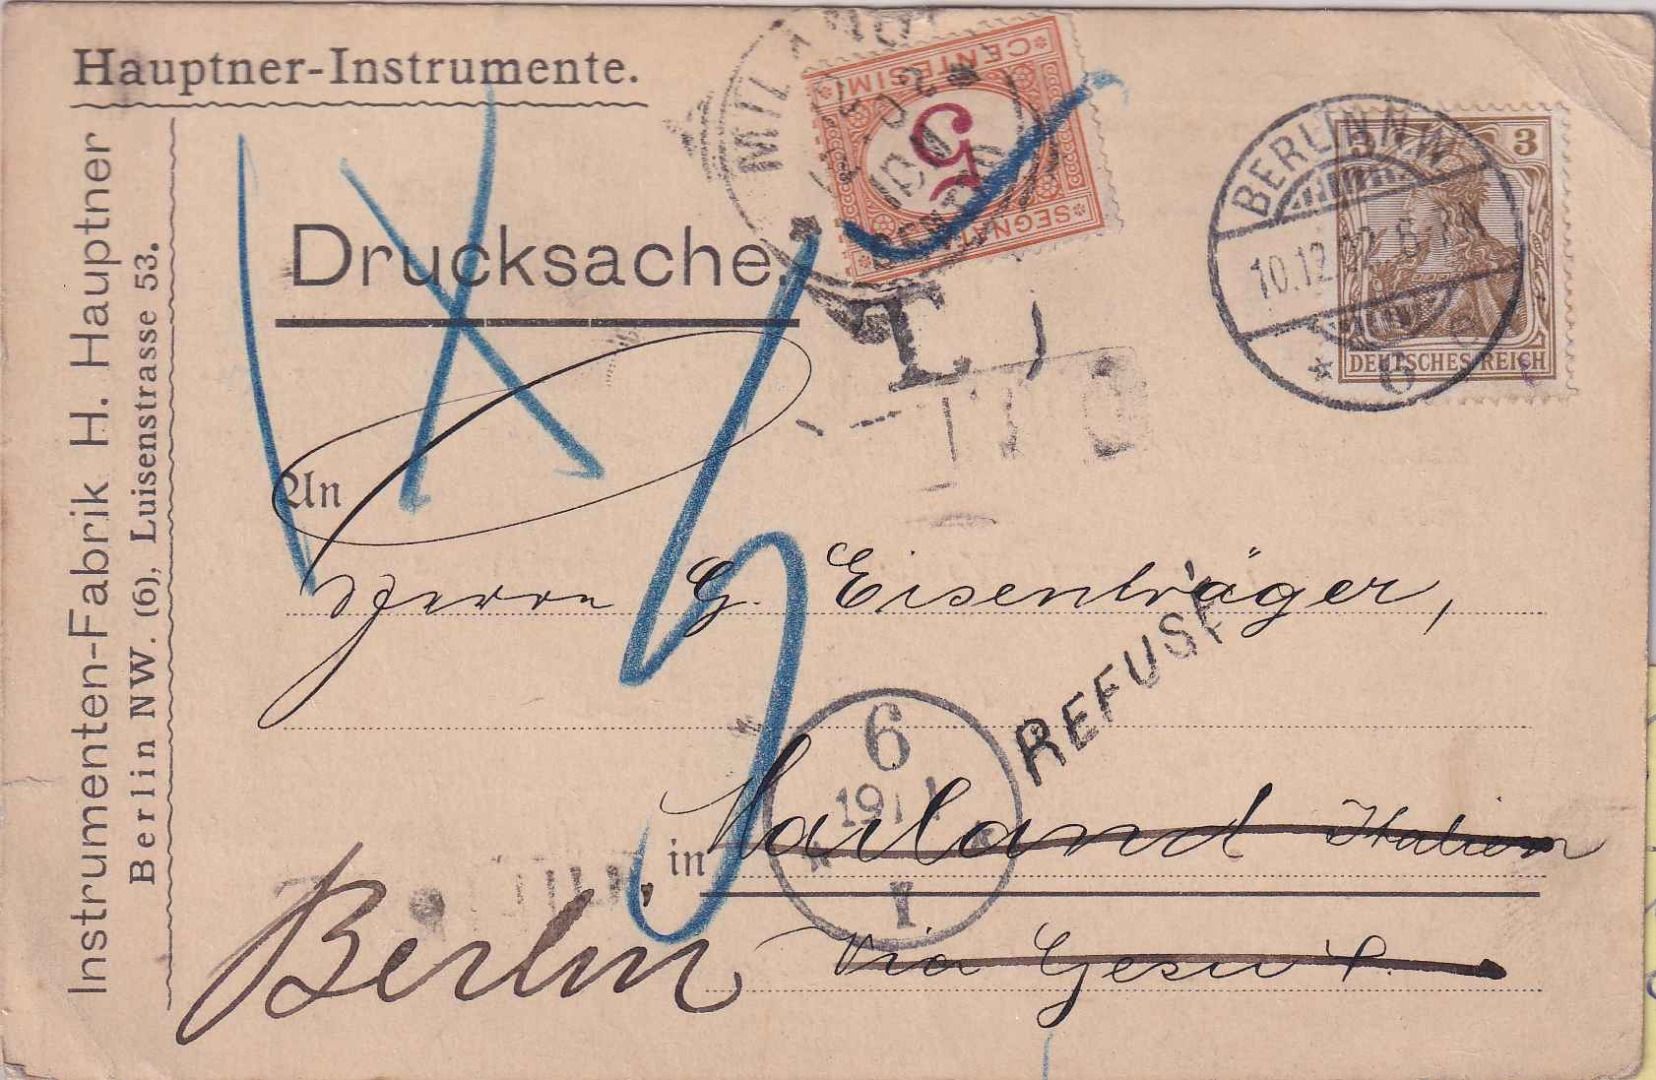 Hauptner-Instrumente.
Instrumenten-Fabrik H. Hauptner
Berlin NW. (6), Luisenstrasse 53.
Drucksache.
MILANO
CENTESIMI
5
SEGNATASSE
BERLIN N.W.
10.12.02. 6-7N
* 6
3
DEUTSCHES REICH
T
An
Herrn G. Eisenträger,
REFUSÉ
6
I
in Mailand Italien
Berlin
Via Gesu